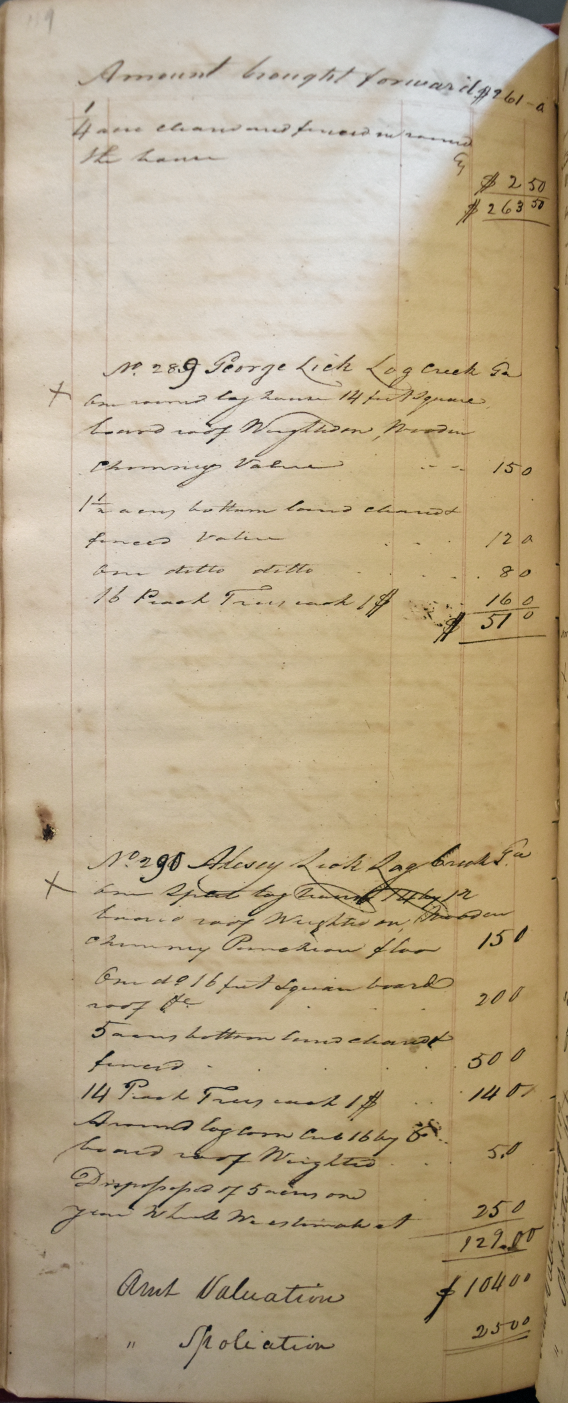 119
Amount brought forward $261-0
1/4 acre cleard and fenced in round
the house
$2 50
$263 50
No 289 George Lick Log Creek Ga
X One round log house 14 feet Square
board roof Weighted on, Wooden
Chimney Value 15 0
1 1/2 acres bottom land cleard &
fenced Value 12 0
One ditto ditto 8 0
16 Peach Trees each 1$ 16 0
$ 51 0
No 290 Lick Log Creek Ga
X One Split log house 14 by 12
board roof Weighted on, Wooden
chimney Puncheon floor 15 0
One do 16 feet Square board
roof &c 20 0
5 acres bottom land cleard &
fenced 50 0
14 Peach Trees each 1$ 14 0
A round log corn Crib 16 by 6
board roof Weighted 5.0
Dispossessed of 5 acres one
year Which We estimate at 25 0
129.00
Amt Valuation $104 00
" Spoliation 25 00